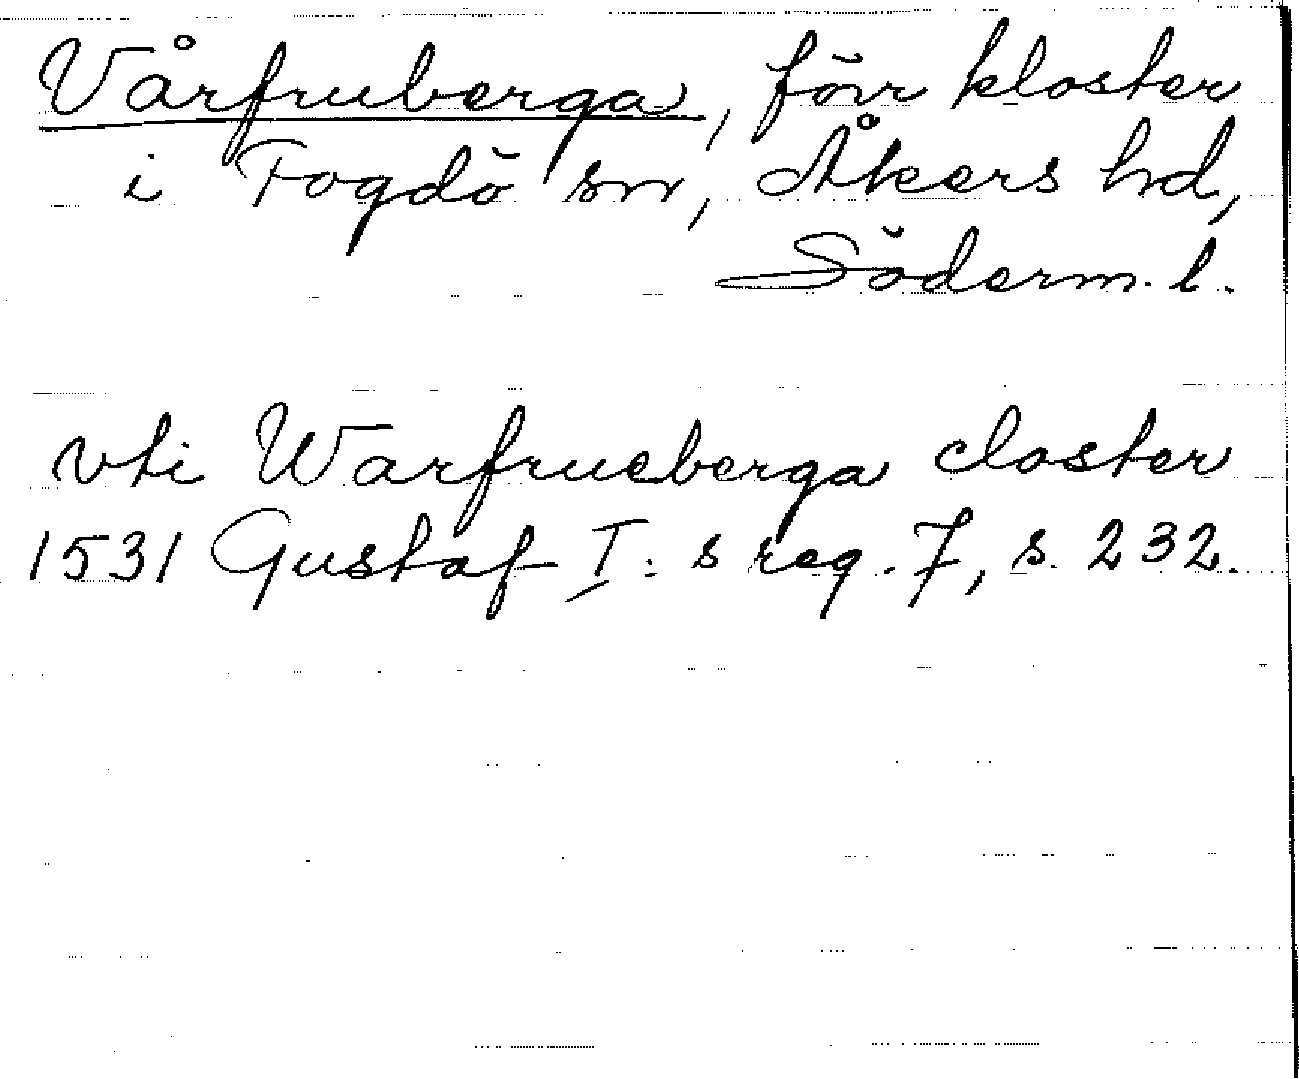 Vårfruberga, förr kloster
i Fogdö sn, Åkers hd,
Söderm. l.
vti Warfrueberga closter
1531 Gustaf I: s reg. 7, s. 232.